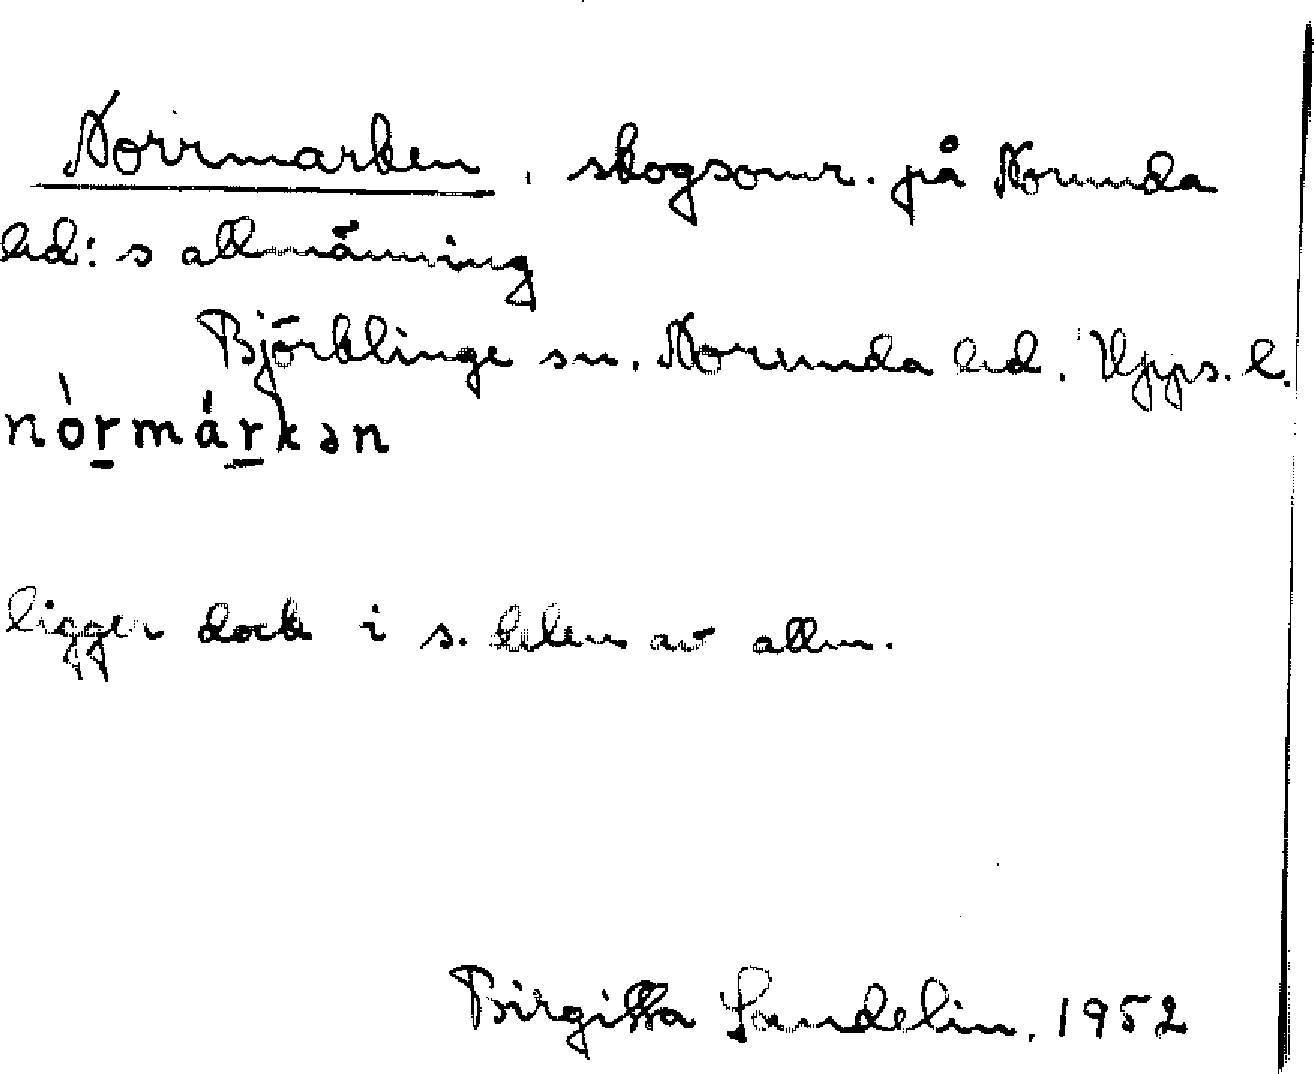 Norrmarken, skogsomr. på Norunda
hd:s allmänning
Björklinge sn. Norunda hd. Upps. l.
nòrmárkən
ligger dock i s. delen av allm.
Birgitta Sundelin. 1952